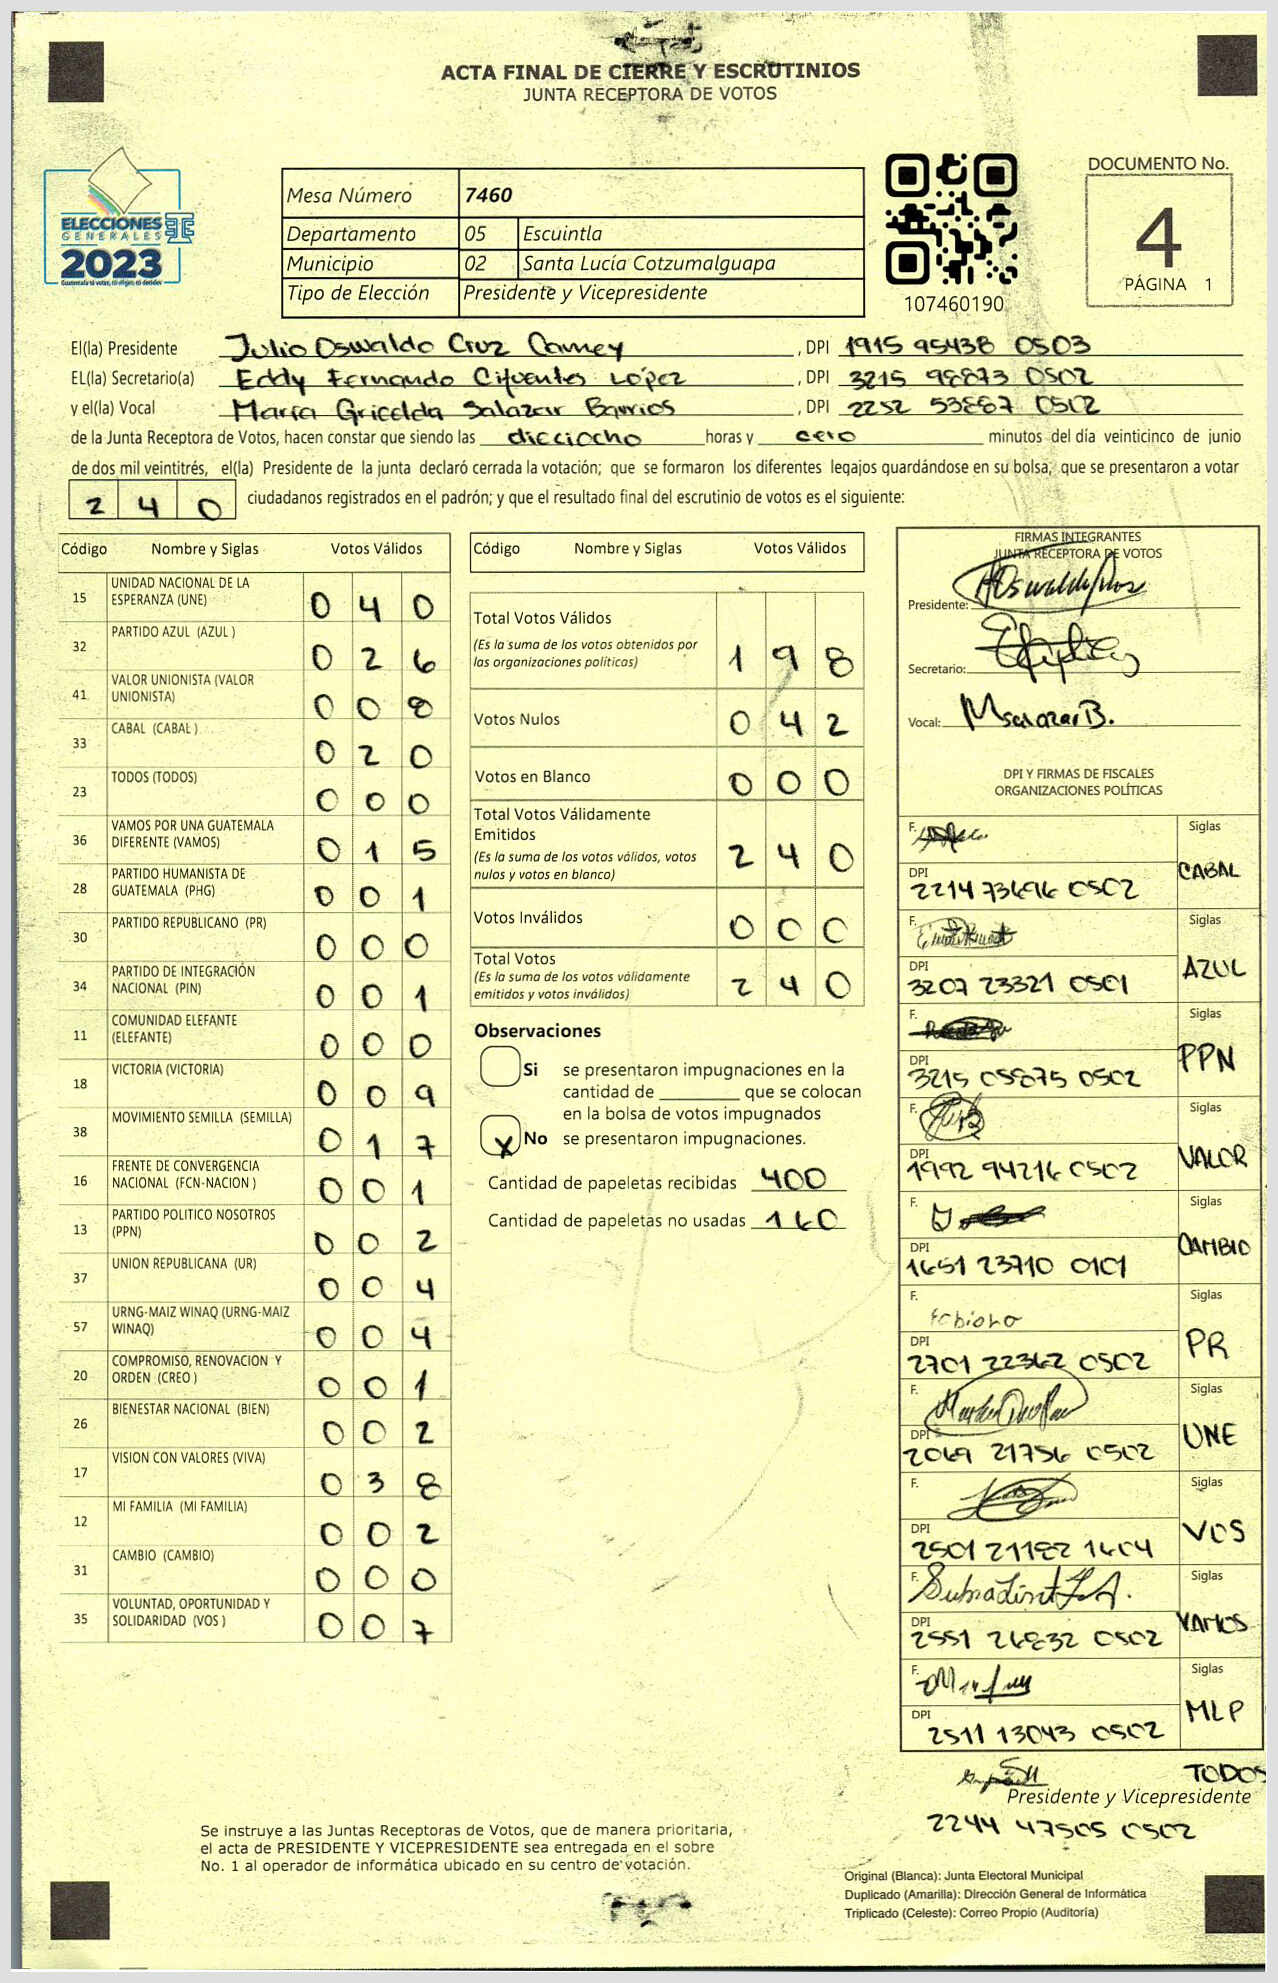 ACTA FINAL DE CIERRE Y ESCRUTINIOS
JUNTA RECEPTORA DE VOTOS
ELECCIONES
GENERALES
2023
Guatemala tú votas, tú eliges, tú decides
Mesa Número 7460
Departamento 05 Escuintla
Municipio 02 Santa Lucía Cotzumalguapa
Tipo de Elección Presidente y Vicepresidente
107460190
DOCUMENTO No.
4
PÁGINA 1
El(la) Presidente Julio Oswaldo Cruz Camey , DPI 1915 95438 0503
EL(la) Secretario(a) Eddy Fernando Cifuentes López , DPI 3215 98873 0502
y el(la) Vocal María Gricelda Salazar Barrios , DPI 2252 53887 0502
de la Junta Receptora de Votos, hacen constar que siendo las diecioho horas y cero minutos del día veinticinco de junio
de dos mil veintitrés, el(la) Presidente de la junta declaró cerrada la votación; que se formaron los diferentes legajos guardándose en su bolsa; que se presentaron a votar
2 4 0 ciudadanos registrados en el padrón; y que el resultado final del escrutinio de votos es el siguiente:
Código Nombre y Siglas Votos Válidos
15 UNIDAD NACIONAL DE LA ESPERANZA (UNE) 0 4 0
32 PARTIDO AZUL (AZUL ) 0 2 6
41 VALOR UNIONISTA (VALOR UNIONISTA) 0 0 8
33 CABAL (CABAL ) 0 2 0
23 TODOS (TODOS) 0 0 0
36 VAMOS POR UNA GUATEMALA DIFERENTE (VAMOS) 0 1 5
28 PARTIDO HUMANISTA DE GUATEMALA (PHG) 0 0 1
30 PARTIDO REPUBLICANO (PR) 0 0 0
34 PARTIDO DE INTEGRACIÓN NACIONAL (PIN) 0 0 1
11 COMUNIDAD ELEFANTE (ELEFANTE) 0 0 0
18 VICTORIA (VICTORIA) 0 0 9
38 MOVIMIENTO SEMILLA (SEMILLA) 0 1 7
16 FRENTE DE CONVERGENCIA NACIONAL (FCN-NACION ) 0 0 1
13 PARTIDO POLITICO NOSOTROS (PPN) 0 0 2
37 UNION REPUBLICANA (UR) 0 0 4
57 URNG-MAIZ WINAQ (URNG-MAIZ WINAQ) 0 0 4
20 COMPROMISO, RENOVACION Y ORDEN (CREO ) 0 0 1
26 BIENESTAR NACIONAL (BIEN) 0 0 2
17 VISION CON VALORES (VIVA) 0 3 8
12 MI FAMILIA (MI FAMILIA) 0 0 2
31 CAMBIO (CAMBIO) 0 0 0
35 VOLUNTAD, OPORTUNIDAD Y SOLIDARIDAD (VOS ) 0 0 7
Código Nombre y Siglas Votos Válidos
Total Votos Válidos
(Es la suma de los votos obtenidos por
las organizaciones políticas) 1 9 8
Votos Nulos 0 4 2
Votos en Blanco 0 0 0
Total Votos Válidamente
Emitidos
(Es la suma de los votos válidos, votos
nulos y votos en blanco) 2 4 0
Votos Inválidos 0 0 0
Total Votos
(Es la suma de los votos válidamente
emitidos y votos inválidos) 2 4 0
Observaciones
Si se presentaron impugnaciones en la
cantidad de ________ que se colocan
en la bolsa de votos impugnados
X No se presentaron impugnaciones.
Cantidad de papeletas recibidas 400
Cantidad de papeletas no usadas 160
FIRMAS INTEGRANTES
JUNTA RECEPTORA DE VOTOS
Presidente:
Secretario:
Vocal: MSalazar B.
DPI Y FIRMAS DE FISCALES
ORGANIZACIONES POLÍTICAS
F. Siglas
DPI 2214 73696 0502 CABAL
F. Siglas
DPI 3207 23321 0501 AZUL
F. Siglas
DPI 3215 05875 0502 PPN
F. Siglas
DPI 1992 94216 0502 VALOR
F. Siglas
DPI 1651 23710 0101 CAMBIO
F. Fabiola Siglas
DPI 2701 22362 0502 PR
F. Siglas
DPI 2069 21756 0502 UNE
F. Siglas
DPI 2501 21182 1404 VOS
F. Siglas
DPI 2551 26832 0502 VAMOS
F. Siglas
DPI 2511 13043 0502 MLP
TODOS
Presidente y Vicepresidente
2244 47505 0502
Se instruye a las Juntas Receptoras de Votos, que de manera prioritaria,
el acta de PRESIDENTE Y VICEPRESIDENTE sea entregada en el sobre
No. 1 al operador de informática ubicado en su centro de votación.
Original (Blanca): Junta Electoral Municipal
Duplicado (Amarilla): Dirección General de Informática
Triplicado (Celeste): Correo Propio (Auditoría)